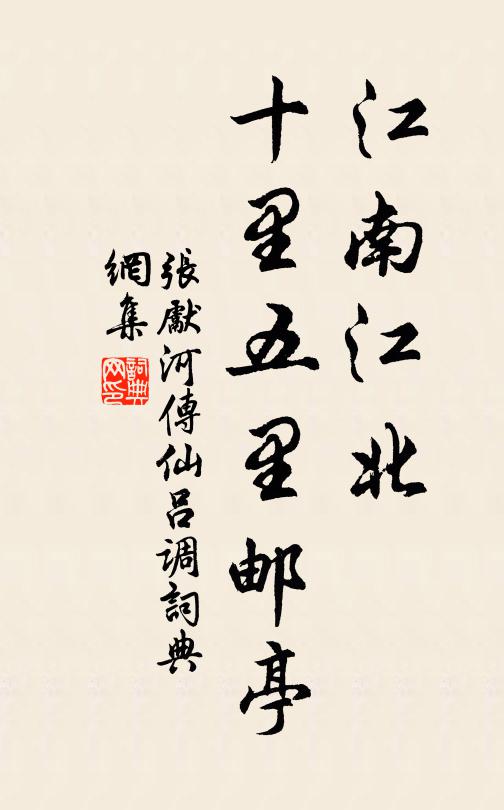 江南江北
十里五里邮亭
張献河傳仙吕调詞典
網集
詞典
网印